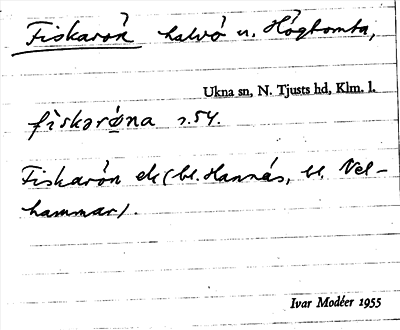 Fiskarön halvö n. Högtomta,
Ukna sn, N. Tjusts hd, Klm. l.
s.54.
Fiskarön ek (bl. Hannäs, bl. Vel-
hammar).
Ivar Modéer 1955